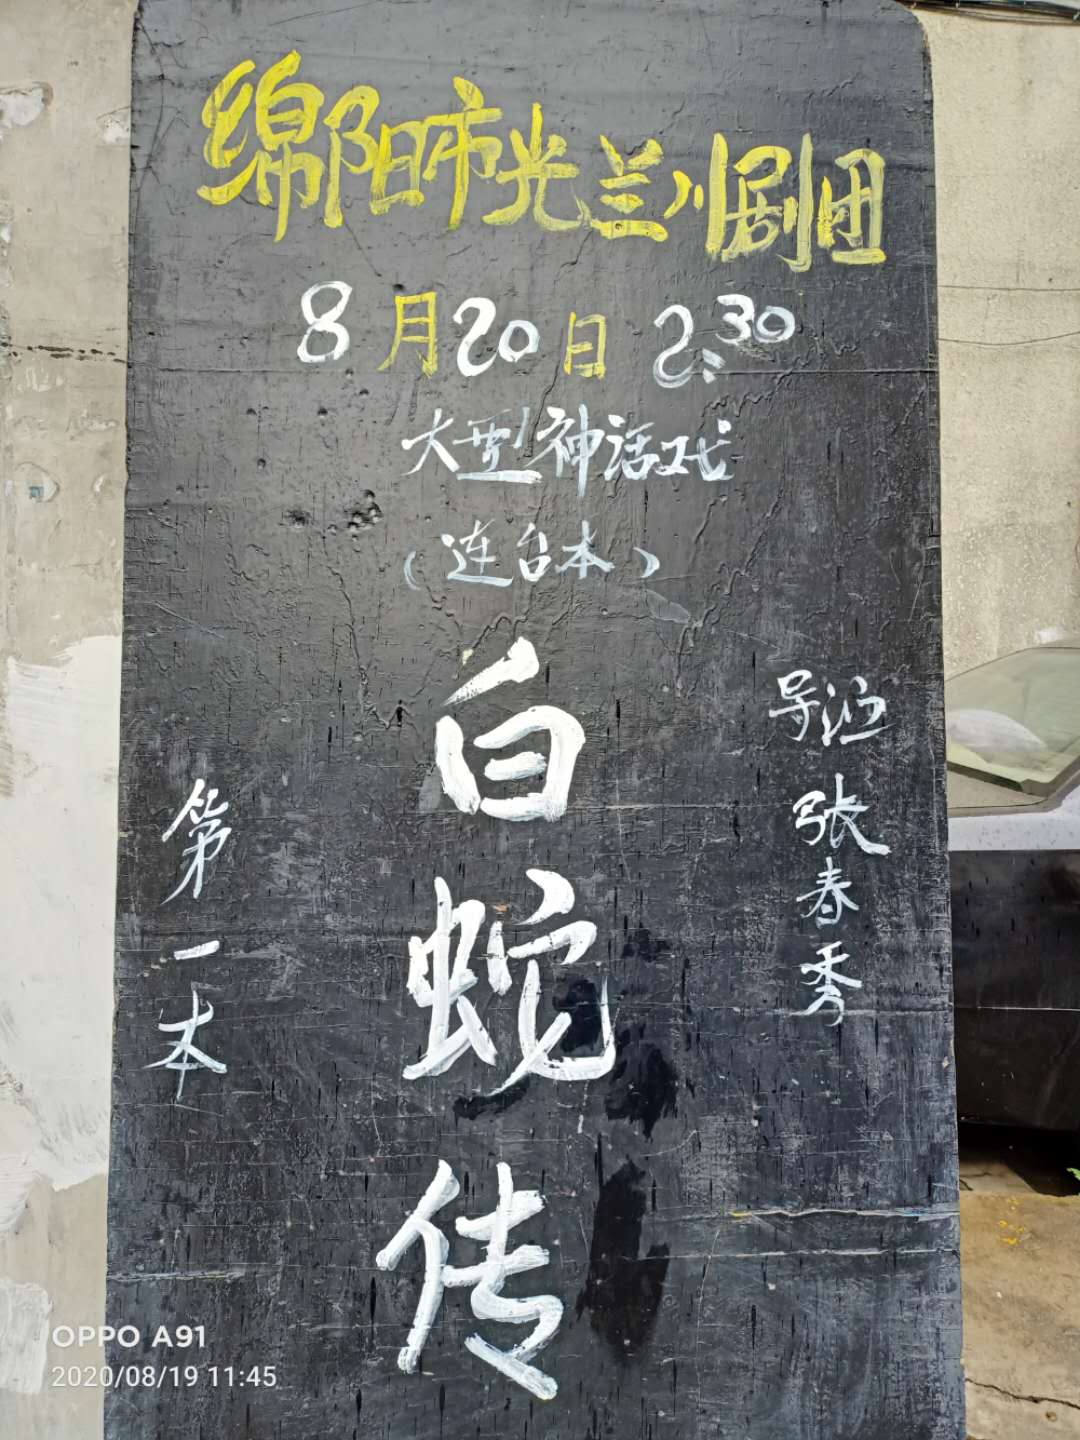 绵阳市光兰川剧团
8月20日 2:30
大型神话戏
（连台本）
白蛇传
导演 张春秀
第一本
OPPO A91
2020/08/19 11:45